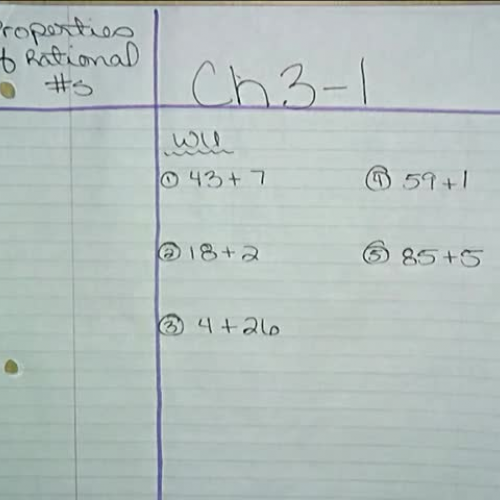 Properties
of Rational
#s
Ch 3-1
WU
① 43 + 7
② 18 + 2
③ 4 + 26
④ 59 + 1
⑤ 85 + 5